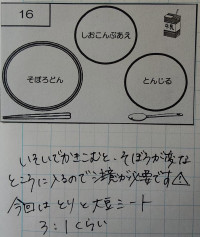 16
しおこんぶあえ
牛乳
そぼろどん
とんじる
いそいでかきこむと、そぼろが変な
ところに入るので注意が必要です⚠
今回はとりと大豆ミート
3:1くらい